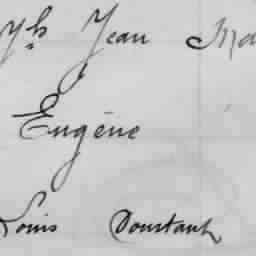 Jean
Eugène
Louis Constant